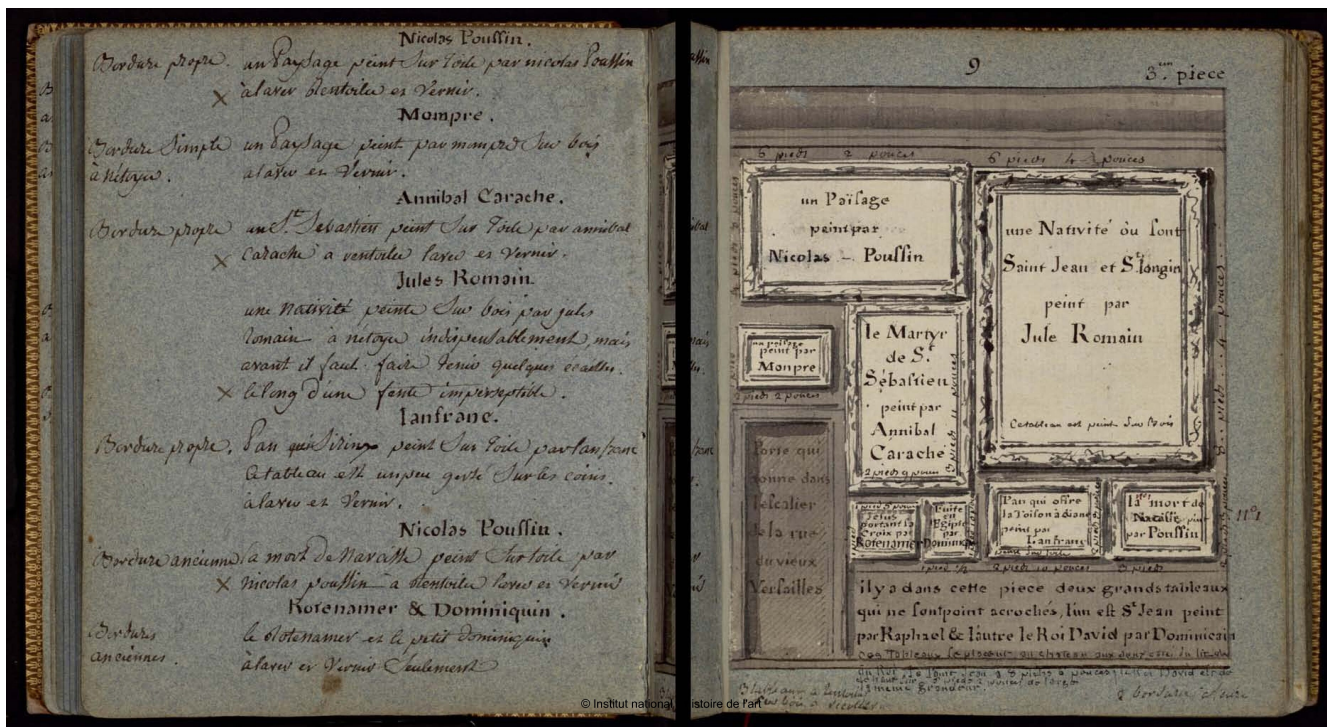 Nicolas Poussin.
Bordure propre. un Paysage peint Sur Toile par nicolas Poussin
à laver Rentoiler et Vernir.
Mompre.
Bordure Simple un Paysage peint par mompre Sur bois
à netoyer. à laver et Vernir.
Annibal Carache.
Bordure propre un St. Sebastien peint Sur Toile par annibal
Carache a rentoiler laver et Vernir.
Jules Romain
une Nativité peinte Sur bois par jules
Romain à netoyer indispensablement mais
avant il faut faire tenir quelques écailles
le long d'une fente imperseptible.
lanfranc.
Bordure propre. Pan peint Sur Toile par lanfranc
Ce tableau est un peu gersé Sur les coins.
à laver et Vernir.
Nicolas Poussin.
Bordure ancienne la mort de Narcisse peint Sur toile par
nicolas poussin a Rentoiler laver et Vernir
Rotenamer & Dominiquin.
Bordures le Rotenamer et le petit dominiquin
anciennes. à laver et Vernir Seulement
9
3.em piece
6 pieds 2 pouces
6 pieds 4 pouces
un Païsage
peint par
Nicolas - Poussin
une Nativité où sont
Saint Jean et St. longin
peint par
Jule Romain
Ce tableau est peint Sur Bois
un païsage
peint par
Monpre
2 pieds 2 pouces
le Martyr
de St.
Sébastien
peint par
Annibal
Carache
2 pieds 9 pouces
Porte qui
donne dans
l'escalier
de la rue
du vieux
Versailles
Jesus
portant la
Croix par
Rotenamer
Fuite
en
Egipte
par
Dominiquin
Pan qui offre
la Toison à diane
peint par
Lanfranc
peint sur toile
la mort de
Narcisse peint
par Poussin
n°1
2 pieds 10 pouces
3 pieds
il y a dans cette piece deux grands tableaux
qui ne sont point acrochés, l'un est St. Jean peint
par Raphael & l'autre le Roi David par Dominicain
Ces Tableaux se placent au chateau aux deux coté du lit
du Roi. le Saint Jean a 8 pieds
la meme grandeur.
© Institut national d'histoire de l'art